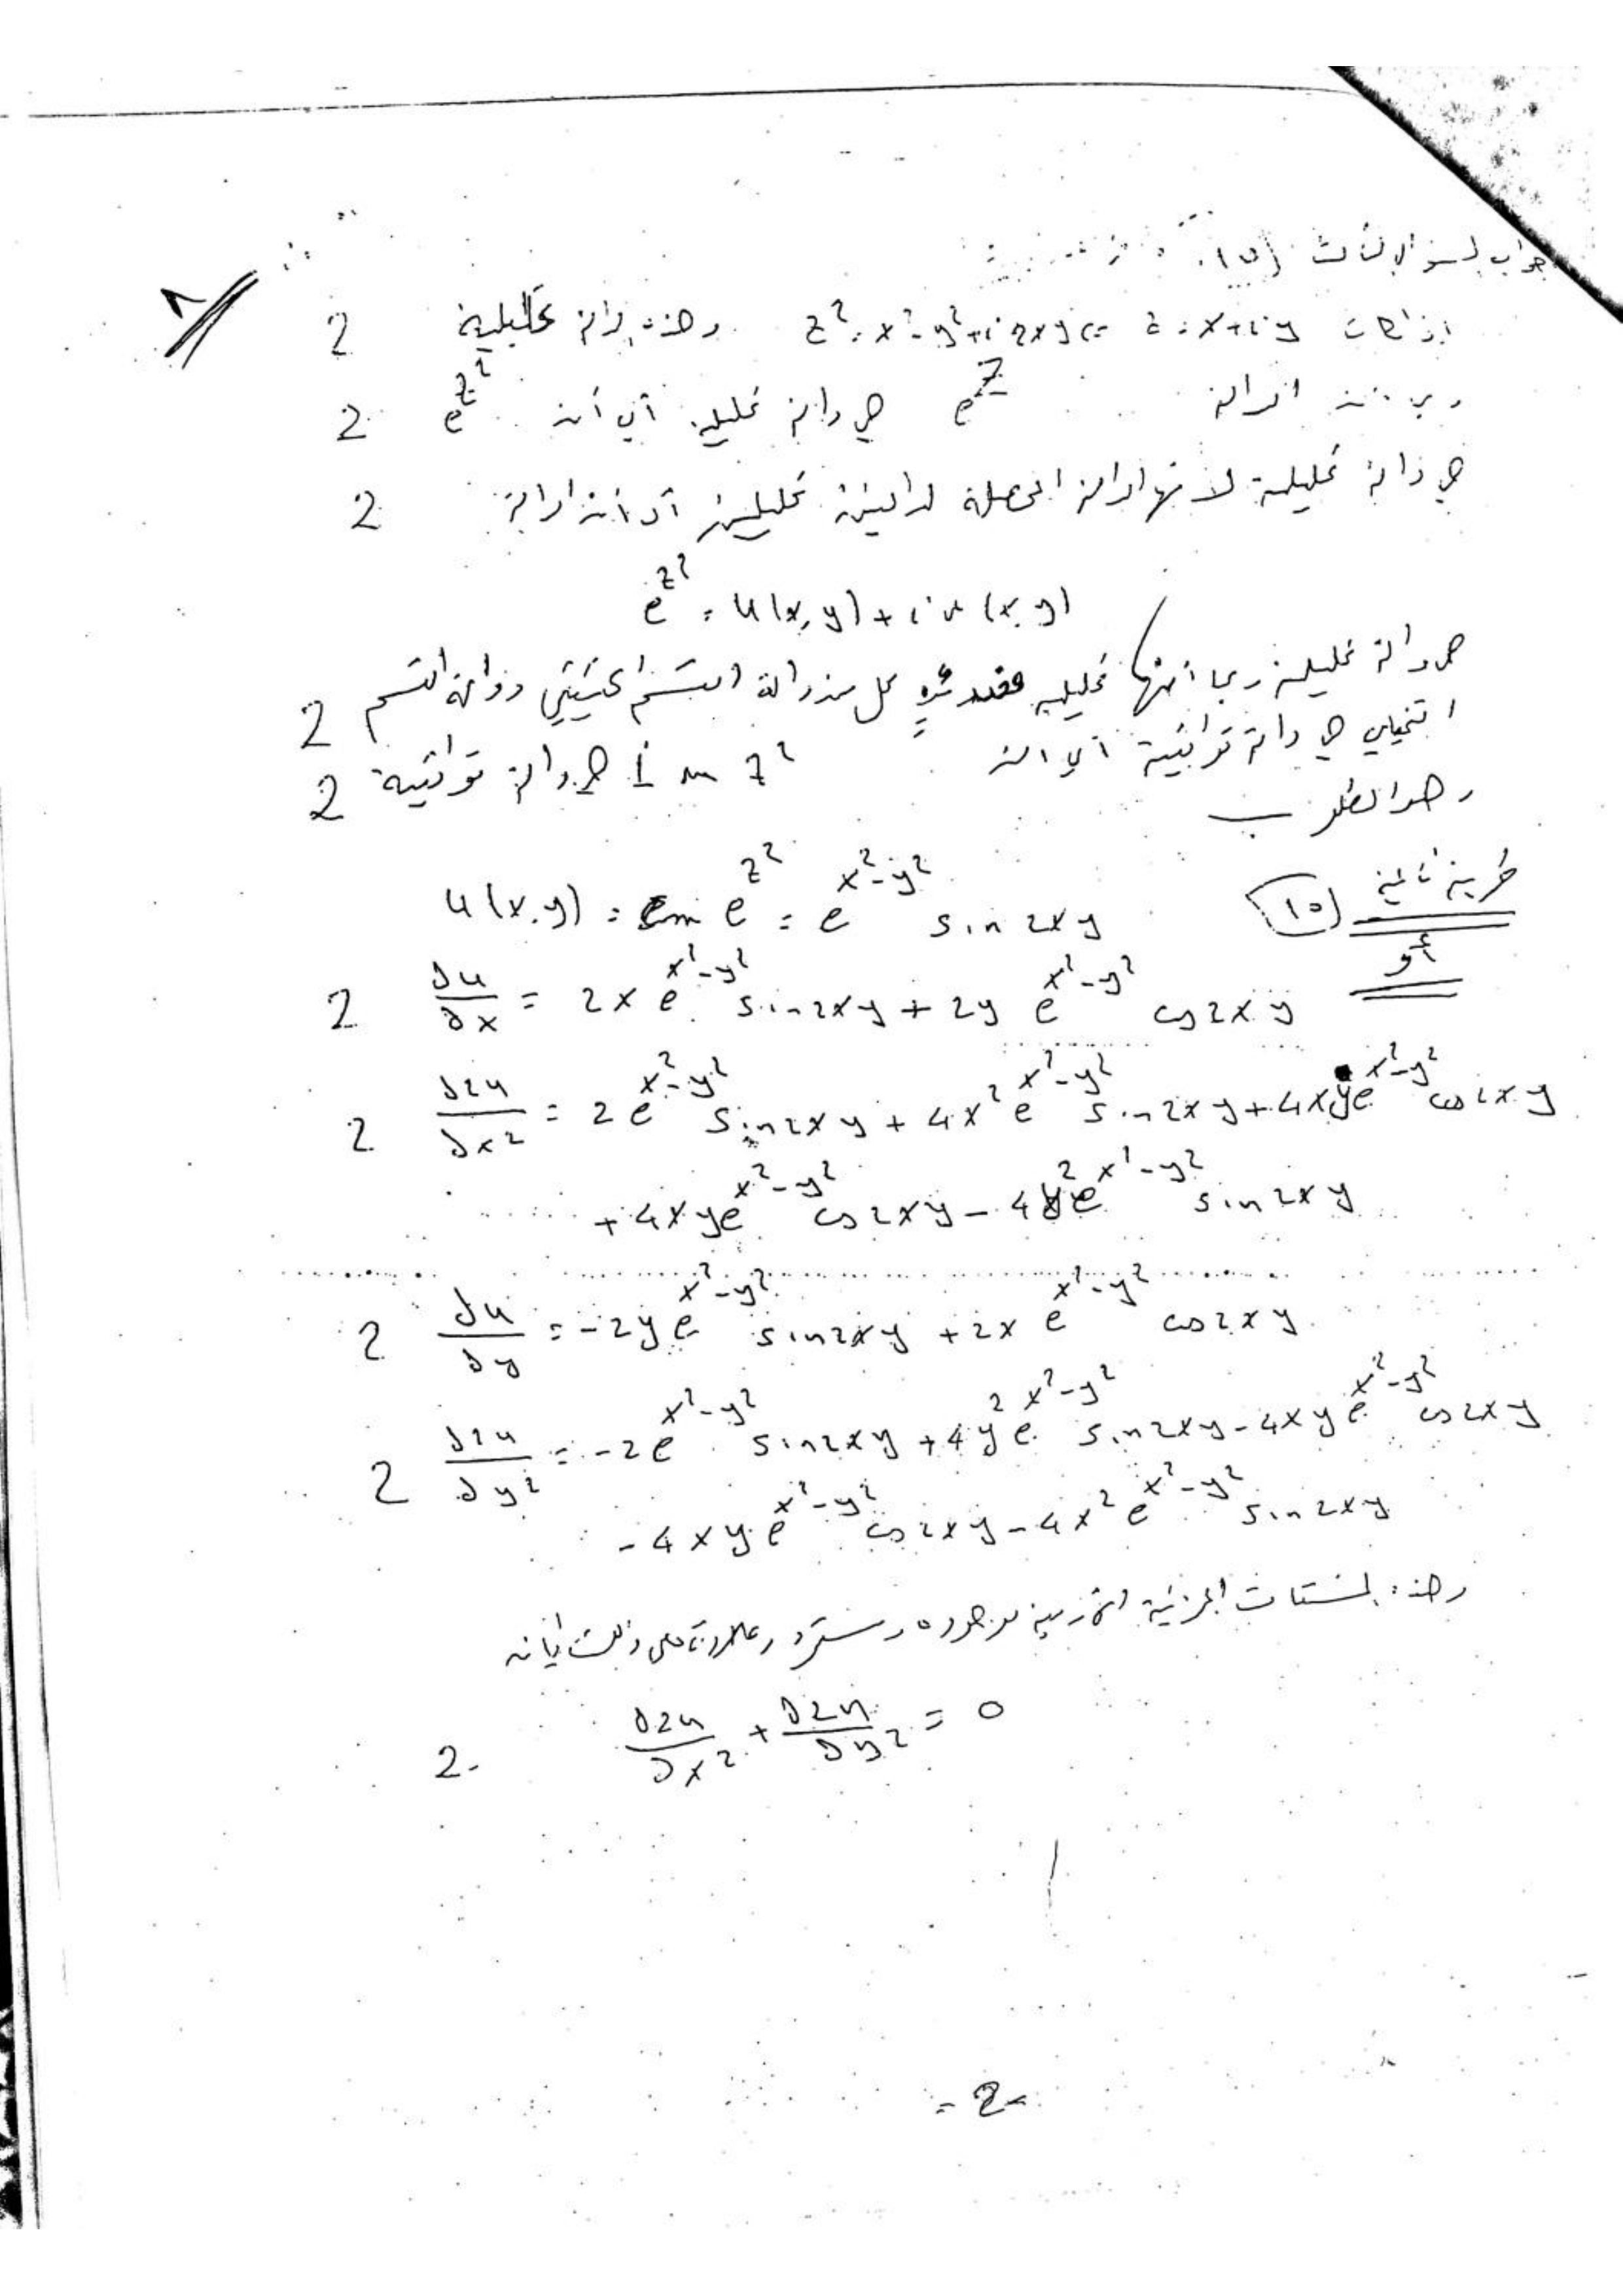 جواب السؤال الثالث (١٥)
إذا كانت z = x+iy => z² = x² - y² + i 2xy وهذه دالة تحليلية 2
الدالة e^z هي دالة تحليلية أي أن e^{z²} 2
هي دالة تحليلية لأنها الدالة المحصلة لدالتين تحليليتين أي أن الدالة 2
e^{z²} = u(x,y) + iv(x,y)
هي دالة تحليلية وبما أنها تحليلية كل من دالة القسم الحقيقي ودالة القسم 2
التخيلي هي دالة توافقية أي أن Im z² هي دالة توافقية 2
وهو المطلوب
طريقة ثانية (١٥) u(x,y) = Im e^{z²} = e^{x²-y²} sin 2xy
أو
2 ∂u/∂x = 2x e^{x²-y²} sin 2xy + 2y e^{x²-y²} cos 2xy
2 ∂²u/∂x² = 2 e^{x²-y²} sin 2xy + 4x² e^{x²-y²} sin 2xy + 4xy e^{x²-y²} cos 2xy
+ 4xy e^{x²-y²} cos 2xy - 4y² e^{x²-y²} sin 2xy
2 ∂u/∂y = -2y e^{x²-y²} sin 2xy + 2x e^{x²-y²} cos 2xy
2 ∂²u/∂y² = -2 e^{x²-y²} sin 2xy + 4y² e^{x²-y²} sin 2xy - 4xy e^{x²-y²} cos 2xy
- 4xy e^{x²-y²} cos 2xy - 4x² e^{x²-y²} sin 2xy
وهذه المشتقات الجزئية موجودة ومستمرة وعلاوة على ذلك فإنه
2 ∂²u/∂x² + ∂²u/∂y² = 0
- 2 -